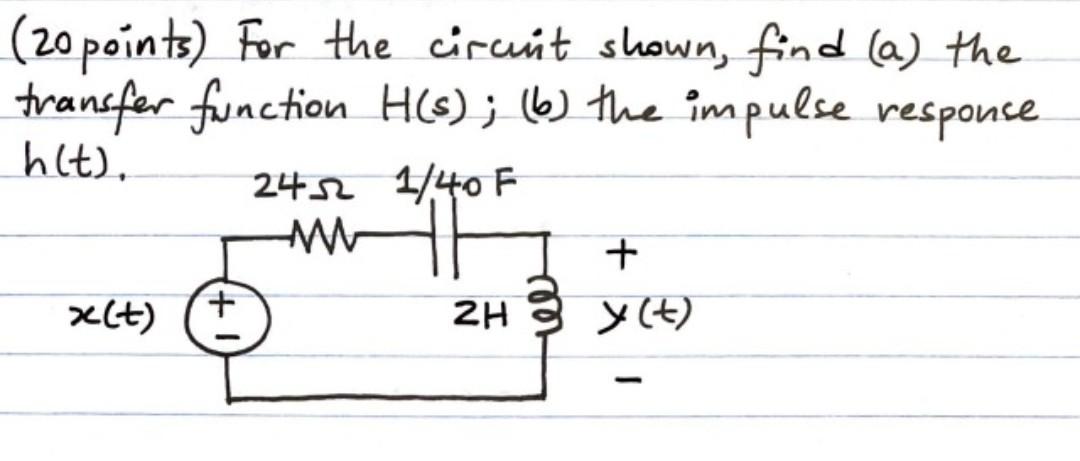 (20 points) For the circuit shown, find (a) the
transfer function H(s); (b) the impulse response
h(t).
24Ω 1/40 F
+
x(t) + 2H y(t)
−
−